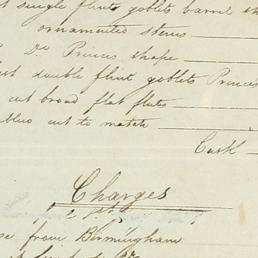 single flint goblets barrel sh
ornamented stems
Do Princes shape
double flint goblets Princes
cut broad flat flutes
cut to match
Cask
Charges
from Birmingham